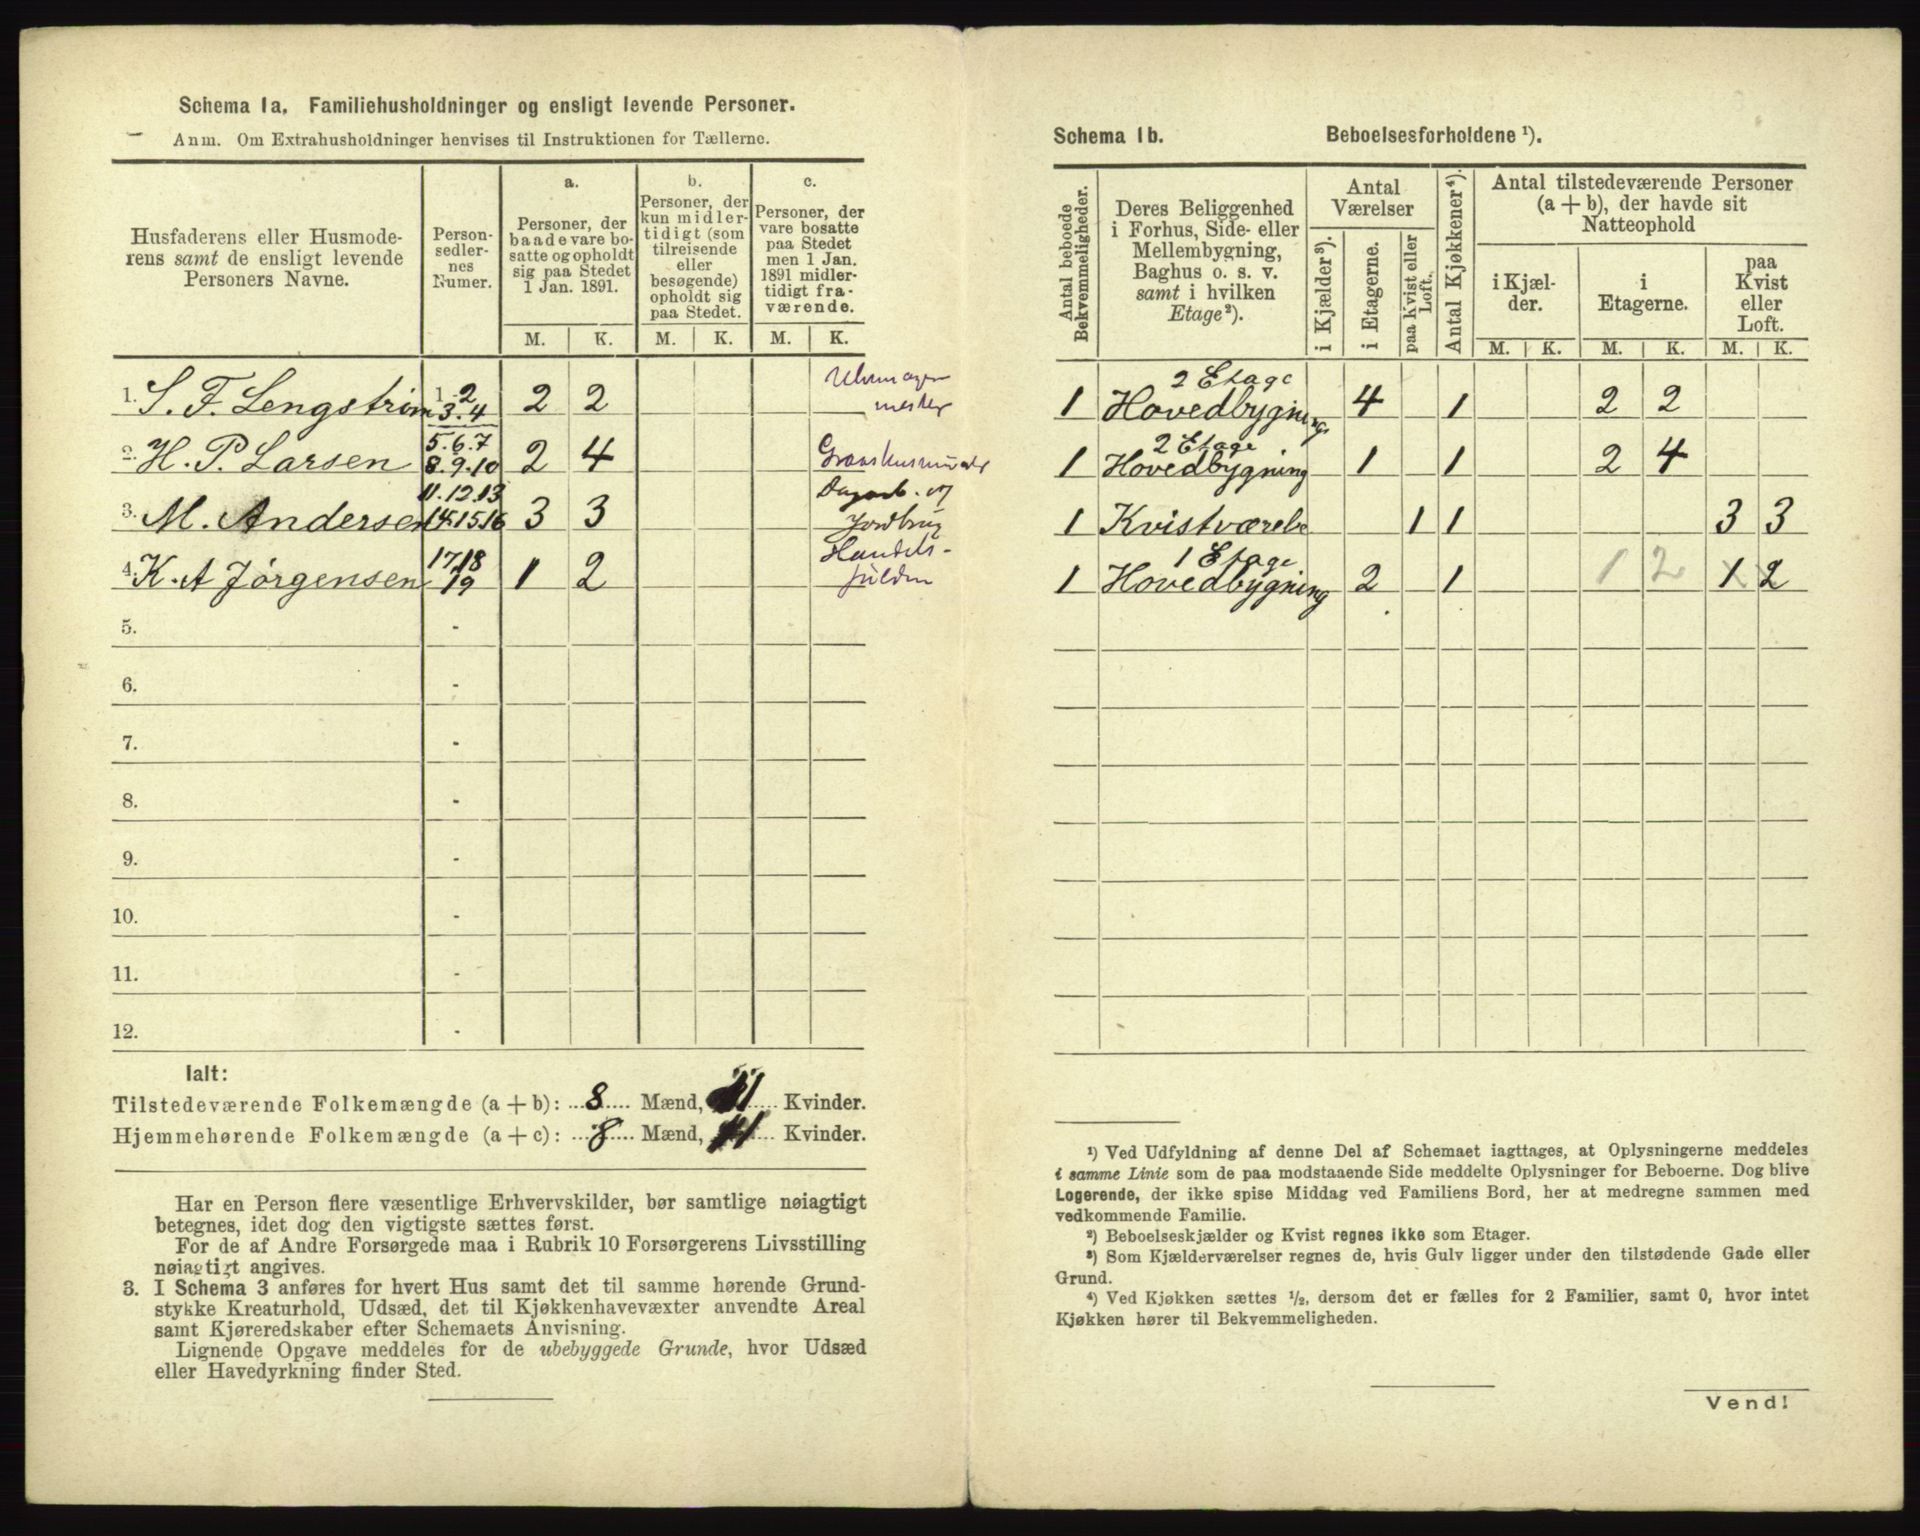 Schema 1a. Familiehusholdninger og ensligt levende Personer.
Anm. Om Extrahusholdninger henvises til Instruktionen for Tællerne.
Husfaderens eller Husmoderens samt de ensligt levende Personers Navne.
Personsedlernes Numer.
a.
Personer, der baade vare bosatte og opholdt sig paa Stedet 1 Jan. 1891.
b.
Personer, der kun midlertidigt (som tilreisende eller besøgende) opholdt sig paa Stedet.
c.
Personer, der vare bosatte paa Stedet men 1 Jan. 1891 midlertidigt fraværende.
M. K. M. K. M. K.
1. S. F. Lengstrøm 1.2 3.4 2 2
2. H. P. Larsen 5.6.7 8.9.10 2 4
3. M. Andersen 11.12.13 14.15.16 3 3 Jordbrug
4. K. A Jørgensen 17.18 19 1 2 Handels-
5. -
6. -
7. -
8. -
9. -
10. -
11. -
12. -
Ialt:
Tilstedeværende Folkemængde (a + b): 8 Mænd, 11 Kvinder.
Hjemmehørende Folkemængde (a + c): 8 Mænd, 11 Kvinder.
Har en Person flere væsentlige Erhvervskilder, bør samtlige nøiagtigt
betegnes, idet dog den vigtigste sættes først.
For de af Andre Forsørgede maa i Rubrik 10 Forsørgerens Livsstilling
nøiagtigt angives.
3. I Schema 3 anføres for hvert Hus samt det til samme hørende Grund-
stykke Kreaturhold, Udsæd, det til Kjøkkenhavevæxter anvendte Areal
samt Kjøreredskaber efter Schemaets Anvisning.
Lignende Opgave meddeles for de ubebyggede Grunde, hvor Udsæd
eller Havedyrkning finder Sted.
Schema 1b. Beboelsesforholdene ¹).
Antal beboede Bekvemmeligheder.
Deres Beliggenhed i Forhus, Side- eller Mellembygning, Baghus o. s. v. samt i hvilken Etage²).
Antal Værelser
i Kjælder³).
i Etagerne.
paa Kvist eller Loft.
Antal Kjøkkener⁴).
Antal tilstedeværende Personer (a + b), der havde sit Natteophold
i Kjælder.
i Etagerne.
paa Kvist eller Loft.
M. K. M. K. M. K.
1 2 Etage Hovedbygning 4 1 2 2
1 2 Etage Hovedbygning 1 1 2 4
1 Kvistværelse 1 1 3 3
1 1 Etage Hovedbygning 2 1 1 2 1 2
¹) Ved Udfyldning af denne Del af Schemaet iagttages, at Oplysningerne meddeles
i samme Linie som de paa modstaaende Side meddelte Oplysninger for Beboerne. Dog blive
Logerende, der ikke spise Middag ved Familiens Bord, her at medregne sammen med
vedkommende Familie.
²) Beboelseskjælder og Kvist regnes ikke som Etager.
³) Som Kjælderværelser regnes de, hvis Gulv ligger under den tilstødende Gade eller
Grund.
⁴) Ved Kjøkken sættes ½, dersom det er fælles for 2 Familier, samt 0, hvor intet
Kjøkken hører til Bekvemmeligheden.
Vend!